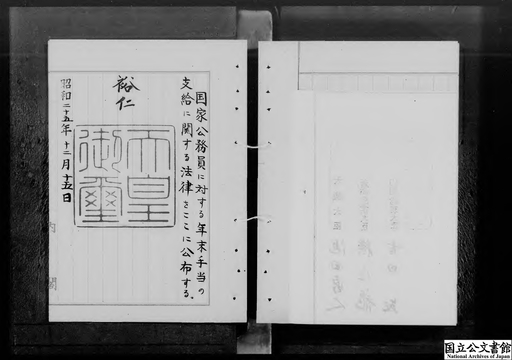 国家公務員に対する年末手当の
支給に関する法律をここに公布する。
裕仁
天皇
御璽
昭和二十五年十二月十五日
内閣
国立公文書館
National Archives of Japan